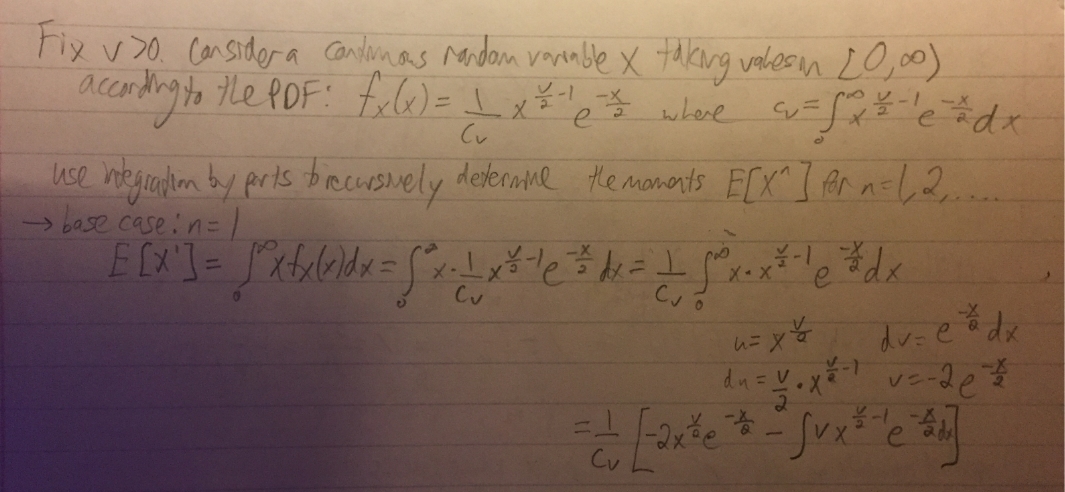 Fix v>0. Consider a continuous random variable X taking values in [0,∞)
according to the PDF: f_X(x) = 1/C_v x^{v/2 -1} e^{-x/2} where c_v = ∫_0^∞ x^{v/2 -1} e^{-x/2} dx
use integration by parts to recursively determine the moments E[X^n] for n=1,2,....
→ base case: n=1
E[X^1] = ∫_0^∞ x f_X(x) dx = ∫_0^∞ x · 1/C_v x^{v/2 -1} e^{-x/2} dx = 1/C_v ∫_0^∞ x · x^{v/2 -1} e^{-x/2} dx
u = x^{v/2} dv = e^{-x/2} dx
du = v/2 · x^{v/2 -1} v = -2e^{-x/2}
= 1/C_v [-2x^{v/2} e^{-x/2} - ∫ v x^{v/2 -1} e^{-x/2} dx]